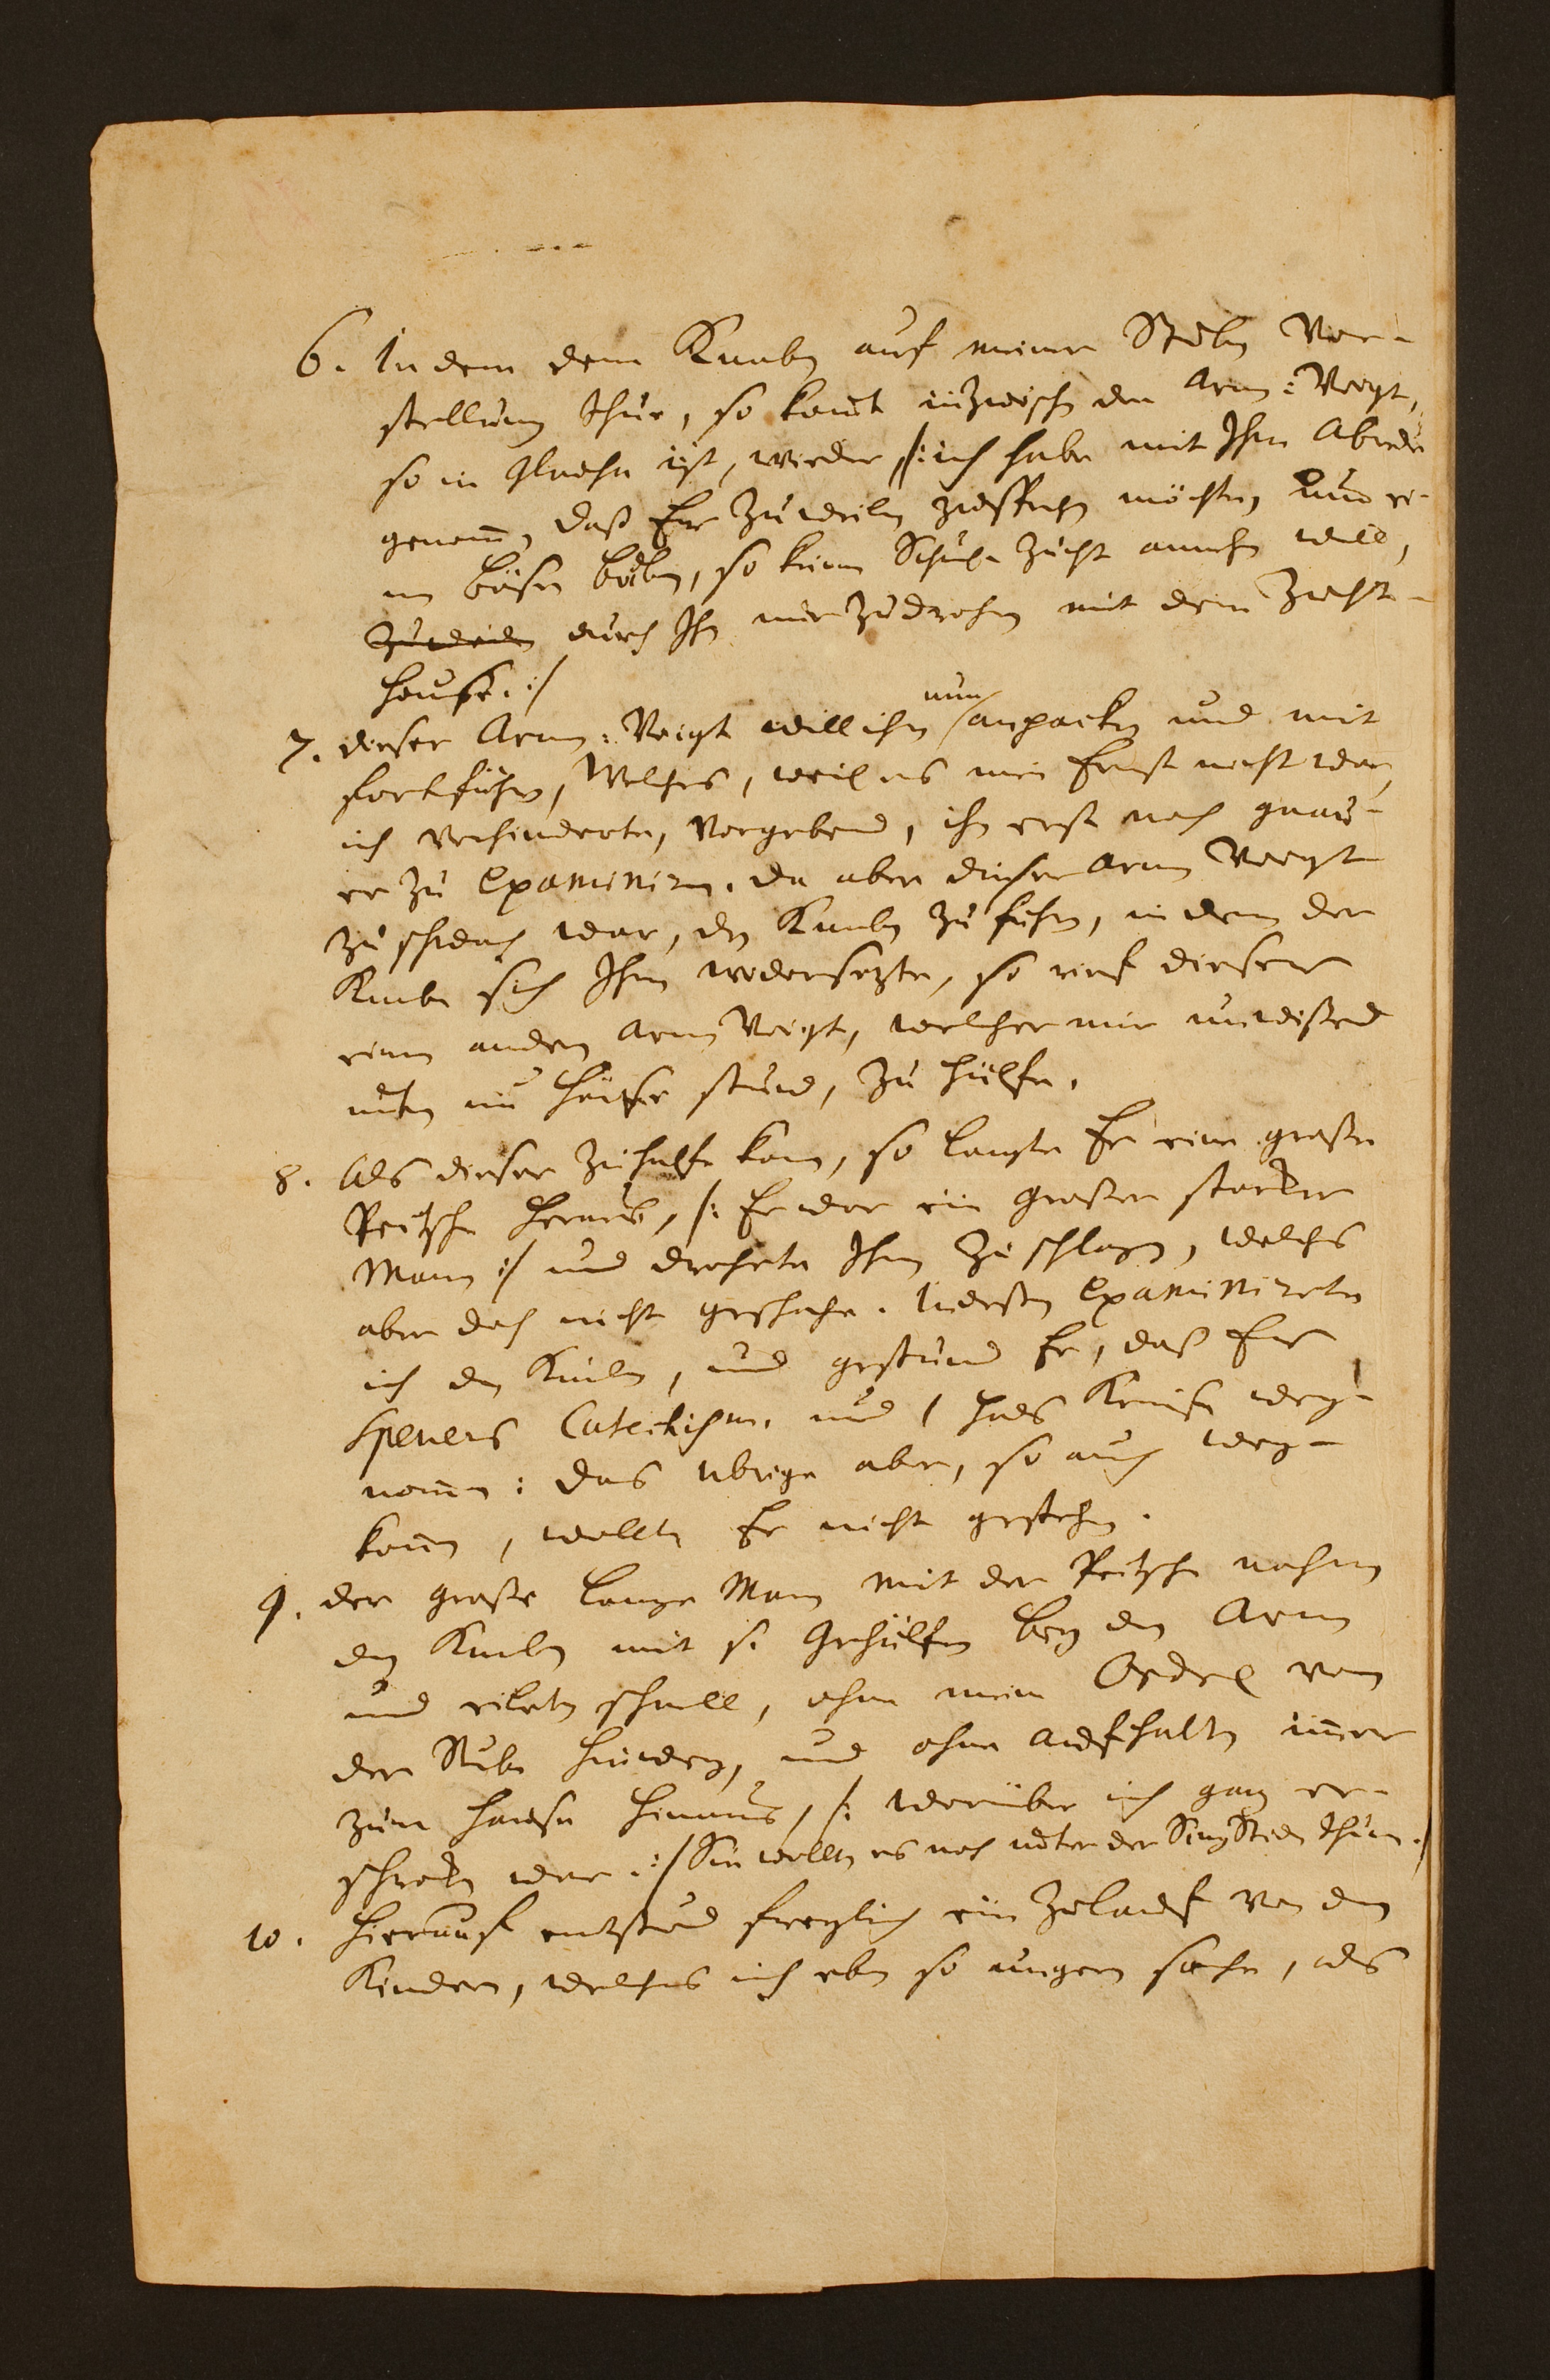 6. Indem dem Knaben auf meiner Stube Vor-
stellung thue, so komt inzwischen der Arm: Voigt,
so in Glaucha ist, wieder /: ich habe mit Ihm Abrede
genom̄en, daß Er zuweilen zusprechen möchte, um ei-
nen bösen buben, so keine Schul-Zucht annehmen will,
zuweilen durch Ihn nur zu drohen mit dem Zucht-
hause. :/
7. dieser Arm: Voigt will ihn nun anpacken und mit
fortführen, Welches, weil es mein Ernst nicht war,
ich verhinderte, Vorgebend, ihn erst noch genau-
er zu Examiniren. da aber dieser Arm Voigt
zu schwach war, den Knaben zu führen, in dem der
Knabe sich Ihm wiedersezte, so rief dieser
einen andern Arm Voigt, welcher mir unwißend
unten im Hause stund, zu hülfe.
8. Als dieser zu hülfe kam, so langte Er eine große
Peitsche heraus, /: Er war ein großer starcker
Mann :/ und drohete Ihn zu schlagen, welches
aber doch nicht geschahe. Indeßen Examinirete
ich den Knaben, und gestund Er, daß Er
Speners Catechism. und 1 Hals Krause weg-
nom̄en: das übrige aber, so auch weg-
kom̄en, wollte Er nicht gestehen.
9. der große lange Mann mit der Peitsche nahm
den Knaben mit s. Gehülfen bey den Arm
und eileten schnell, ohne mein Befehl von
der Stube hinweg, und ohne aufhalten im̄er
zum Hause hinaus, /: worüber ich ganz er-
schrocken war. :/ Sie wollten es noch unter der SingStunde thun. /
10. Hierauf entstund freylich ein Zulauf von den
Kindern, welches ich eben so ungern sahe, als